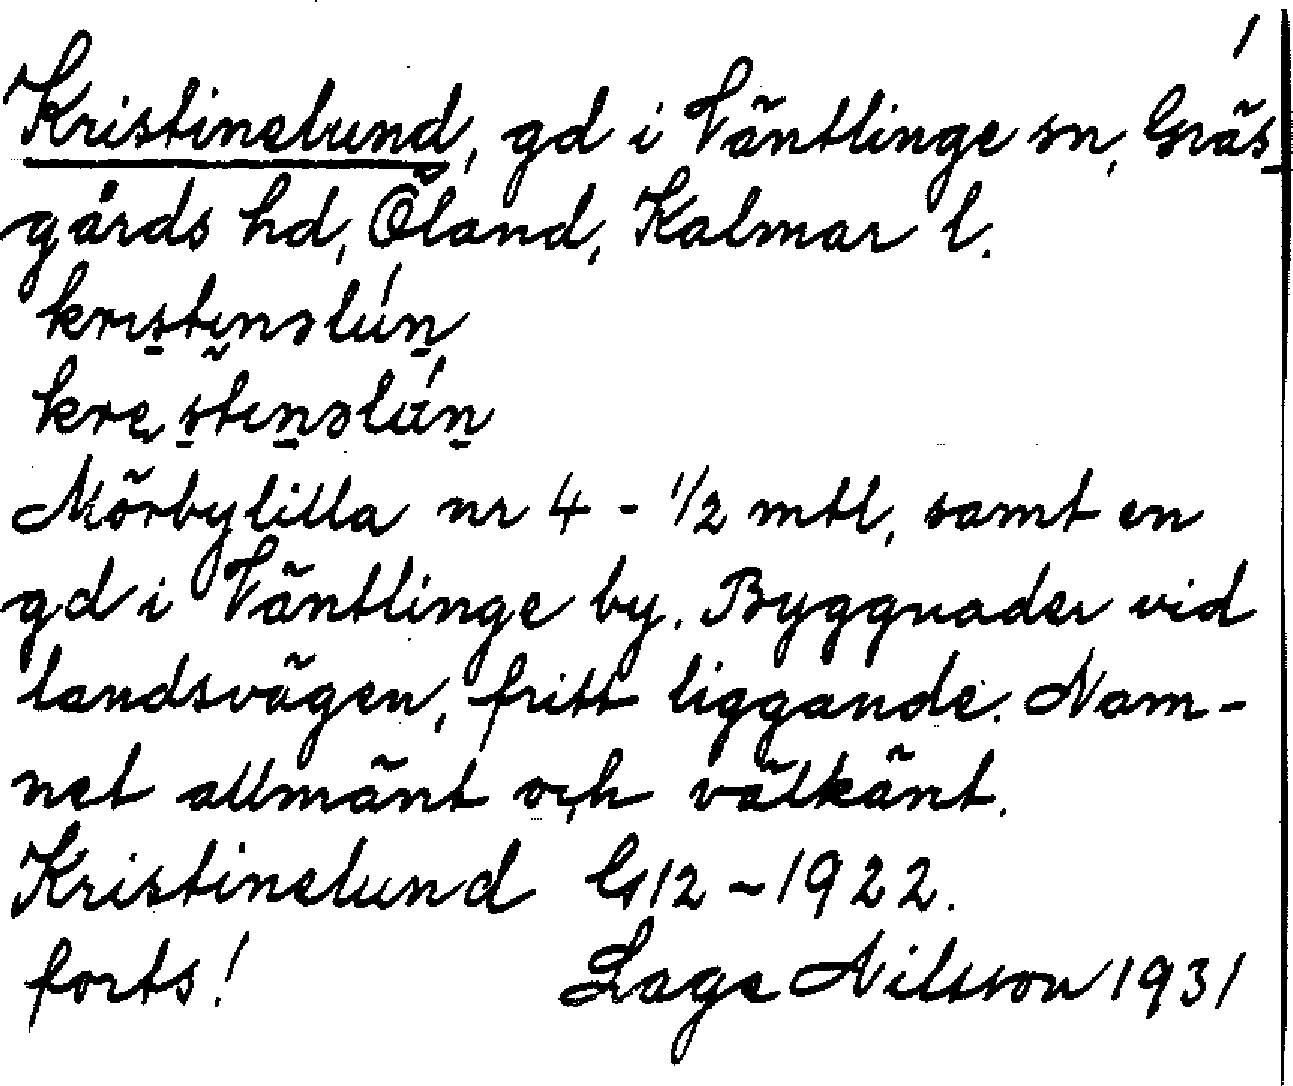 1
Kristinelund, gd i Väntlinge sn, Gräs-
gårds hd, Öland, Kalmar l.
kristinəlún
krestinəlún
Mörbylilla nr 4 - 1/2 mtl, samt en
gd i Väntlinge by. Byggnader vid
landsvägen, fritt liggande. Nam-
net allmänt och välkänt.
Kristinelund G12 - 1922.
forts! Lage Nilsson 1931